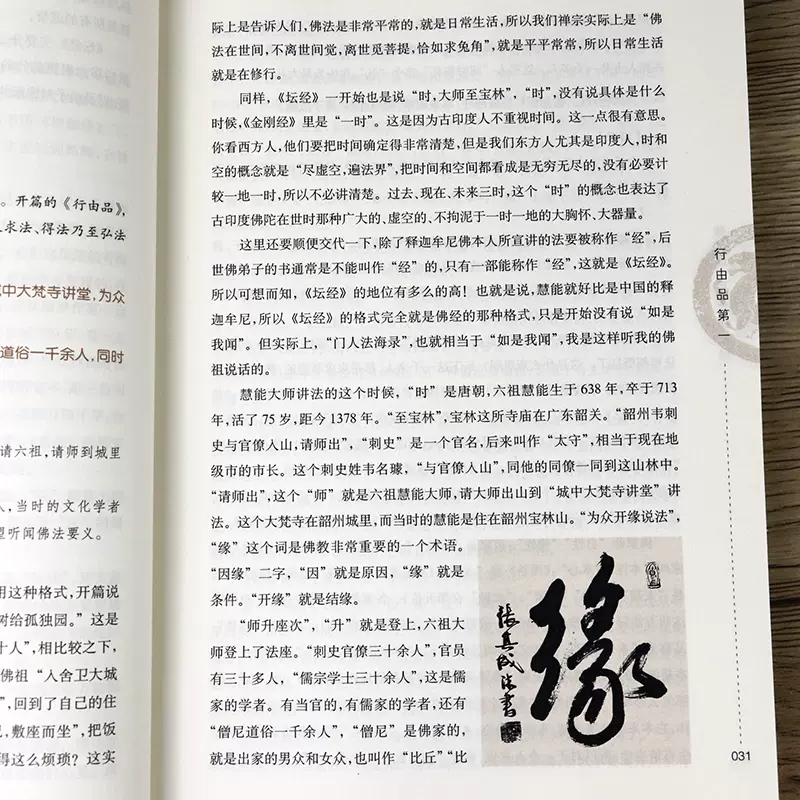 。开篇的《行由品》,
求法、得法乃至弘法
城中大梵寺讲堂，为众
道俗一千余人，同时
请六祖，请师到城里
人，当时的文化学者
望听闻佛法要义。
用这种格式，开篇说
树给孤独园。”这是
十人”，相比较之下，
佛祖“入舍卫大城
”，回到了自己的住
，敷座而坐”，把饭
得这么烦琐？这实
际上是告诉人们，佛法是非常平常的，就是日常生活，所以我们禅宗实际上是“佛
法在世间，不离世间觉，离世觅菩提，恰如求兔角”，就是平平常常，所以日常生活
就是在修行。
同样，《坛经》一开始也是说“时，大师至宝林”，“时”，没有说具体是什么
时候，《金刚经》里是“一时”。这是因为古印度人不重视时间。这一点很有意思。
你看西方人，他们要把时间确定得非常清楚，但是我们东方人尤其是印度人，时和
空的概念就是“尽虚空，遍法界”，把时间和空间都看成是无穷无尽的，没有必要计
较一地一时，所以不必讲清楚。过去、现在、未来三时，这个“时”的概念也表达了
古印度佛陀在世时那种广大的、虚空的、不拘泥于一时一地的大胸怀、大器量。
这里还要顺便交代一下，除了释迦牟尼佛本人所宣讲的法要被称作“经”，后
世佛弟子的书通常是不能叫作“经”的，只有一部能称作“经”，这就是《坛经》。
所以可想而知，《坛经》的地位有多么的高！也就是说，慧能就好比是中国的释
迦牟尼，所以《坛经》的格式完全就是佛经的那种格式，只是开始没有说“如是
我闻”。但实际上，“门人法海录”，也就相当于“如是我闻”，我是这样听我的佛
祖说话的。
慧能大师讲法的这个时候，“时”是唐朝，六祖慧能生于 638 年，卒于 713
年，活了 75 岁，距今 1378 年。“至宝林”，宝林这所寺庙在广东韶关。“韶州韦刺
史与官僚入山，请师出”，“刺史”是一个官名，后来叫作“太守”，相当于现在地
级市的市长。这个刺史姓韦名璩，“与官僚入山”，同他的同僚一同到这山林中。
“请师出”，这个“师”就是六祖慧能大师，请大师出山到“城中大梵寺讲堂”讲
法。这个大梵寺在韶州城里，而当时的慧能是住在韶州宝林山。“为众开缘说法”，
“缘”这个词是佛教非常重要的一个术语。
“因缘”二字，“因”就是原因，“缘”就是
条件。“开缘”就是结缘。
“师升座次”，“升”就是登上，六祖大
师登上了法座。“刺史官僚三十余人”，官员
有三十多人，“儒宗学士三十余人”，这是儒
家的学者。有当官的，有儒家的学者，还有
“僧尼道俗一千余人”，“僧尼”是佛家的，
就是出家的男众和女众，也叫作“比丘”“比
缘
行由品第一
031